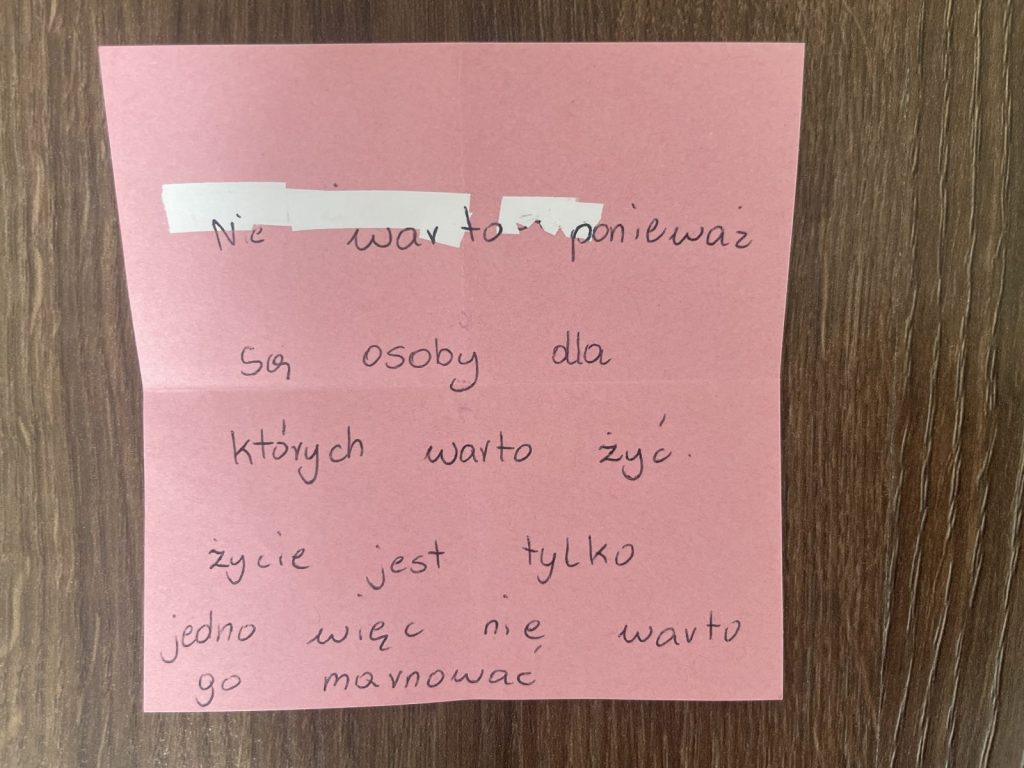 Nie warto ponieważ
Są osoby dla
których warto żyć.
życie jest tylko
jedno więc nie warto
go marnować